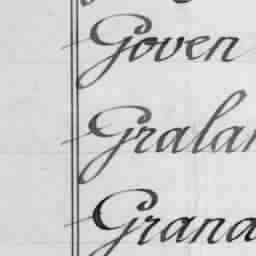 Goven
Gralan
Grana